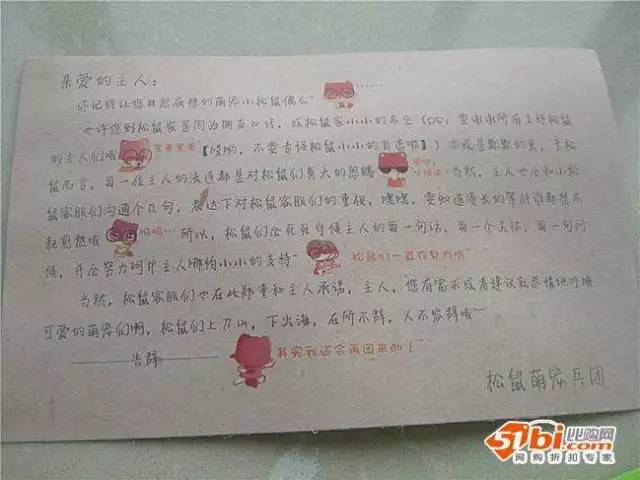 亲爱的主人：
还记得让您日思夜想的萌宠小松鼠偶么~ ......
也许您到松鼠家是因为朋友口传，或松鼠家小小的名气（PS：要谢谢所有支持松鼠
的主人们哦 害羞害羞 【哎哟，不要责怪松鼠小小的自恋啦】）亦或是默默的来，于松
鼠而言，每一位主人的造访都是对松鼠们莫大的恩赐 当然，主人也会和小松
鼠客服们沟通个几句，表达下对松鼠客服们的重视，嘿嘿，要知道漫长的等待谁都禁不
起煎熬哦 呵呵... 所以，松鼠们会死死守候主人的每一句话，每一个关怀，每一句问
候，并会努力呵护主人哪怕小小的支持~ 松鼠们一直在努力哦~
当然，松鼠客服们也在此郑重和主人承诺，主人，您有需求或者建议就尽情地呼唤
可爱的萌宠们啊，松鼠们上刀山，下火海，在所不辞，义不容辞哦~
告辞 其实我还会再回来的！~
松鼠萌宠兵团
51bi.com 比购网
网购折扣专家